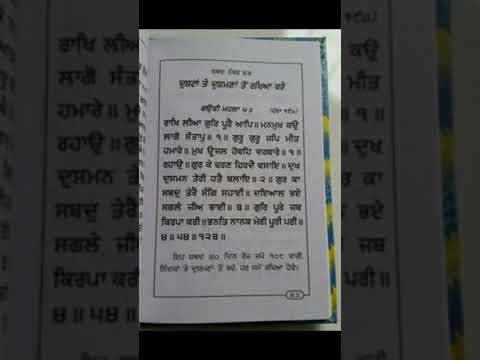 ਸ਼ਬਦ ਨੰਬਰ ੪੨
ਦੁਸ਼ਟਾਂ ਤੇ ਦੁਸ਼ਮਣਾਂ ਤੋਂ ਰਖਿਆ ਕਰੇ
ਗਉੜੀ ਮਹਲਾ ੫॥ (ਪੰਨਾ ੧੯੦)
ਰਾਖਿ ਲੀਆ ਗੁਰਿ ਪੂਰੈ ਆਪਿ॥ ਮਨਮੁਖ ਕਉ
ਲਾਗੋ ਸੰਤਾਪੁ॥੧॥ ਗੁਰੂ ਗੁਰੂ ਜਪਿ ਮੀਤ
ਹਮਾਰੇ॥ ਮੁਖ ਊਜਲ ਹੋਵਹਿ ਦਰਬਾਰੇ॥੧॥
ਰਹਾਉ॥ ਗੁਰ ਕੇ ਚਰਣ ਹਿਰਦੈ ਵਸਾਇ॥ ਦੁਖ
ਦੁਸਮਨ ਤੇਰੀ ਹਤੈ ਬਲਾਇ॥੨॥ ਗੁਰ ਕਾ
ਸਬਦੁ ਤੇਰੈ ਸੰਗਿ ਸਹਾਈ॥ ਦਇਆਲ ਭਏ
ਸਗਲੇ ਜੀਅ ਭਾਈ॥੩॥ ਗੁਰਿ ਪੂਰੈ ਜਬ
ਕਿਰਪਾ ਕਰੀ॥ ਭਨਤਿ ਨਾਨਕ ਮੇਰੀ ਪੂਰੀ ਪਰੀ॥
੪॥੫੪॥੧੨੩॥
ਇਹ ਸ਼ਬਦ ੪੦ ਦਿਨ ਰੋਜ਼ ਜਪੇ ੧੦੮ ਵਾਰੀ,
ਨਿੰਦਕਾਂ ਤੇ ਦੁਸ਼ਮਣਾਂ ਤੋਂ ਬਚੇ, ਹਰ ਸਮੇਂ ਰਖਿਆ ਹੋਵੇ।